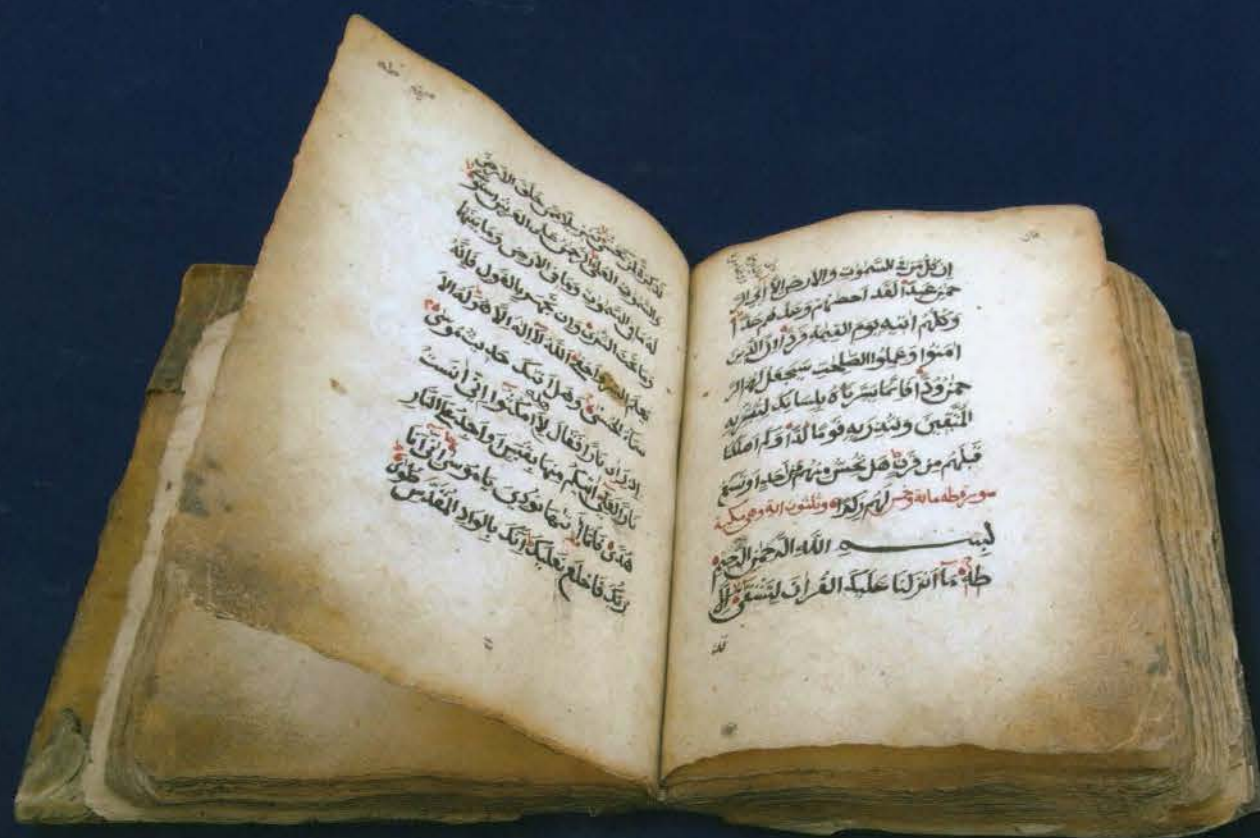 ان كل من في السموت والارض الا اتي الر
حمن عبدا لقد احصهم وعدهم عدا
وكلهم اتيه يوم القيمه فردا ان الذين
امنوا وعملوا الصلحت سيجعل لهم الر
حمن ودا فانما يسرناه بلسانك لتبشر به
المتقين وتنذر به قوما لدا وكم اهلكنا
قبلهم من قرن هل تحس منهم من احد او تسمع
سورة طه ماية وخمس لهم ركزا وثلثون اية وهي مكية
بسم الله الرحمن الرحيم
طه ما انزلنا عليك القران لتشقى الا
طه
تذكرة لمن يخشى تنزيلا ممن خلق الارض
والسموت العلى الرحمن على العرش استوى
له ما في السموت وما في الارض وما بينهما
وما تحت الثرى وان تجهر بالقول فانه
يعلم السر واخفى الله لا اله الا هو له الا
سماء الحسنى وهل اتيك حديث موسى
اذ راى نارا فقال لاهله امكثوا اني انست
نارا لعلي اتيكم منها بقبس او اجد على النار
هدى فلما اتيها نودي يا موسى اني انا
ربك فاخلع نعليك انك بالواد المقدس طوى